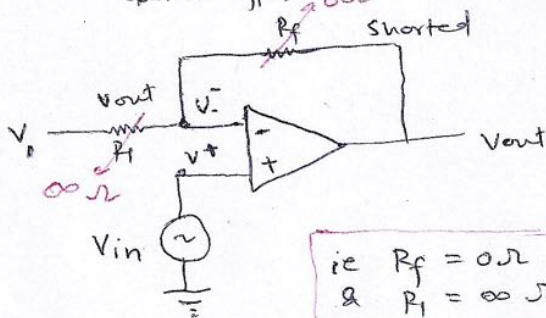 Rf
Shorted
Vout
V-
V1
R1
V+
∞ Ω
-
+
Vout
Vin
~
ie Rf = 0Ω
& R1 = ∞ Ω